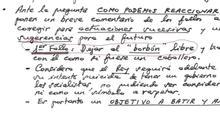 • Ante la pregunta COMO PODEMOS REACCIONAR
ponen un breve comentario de los fallos
corregir para actuaciones sucesivas y u
sugerencias para el futuro
- 1er Fallo: Dejar al "borbón" libre y
con él como si fuese un caballero.
- Considero que él les seguirá adelante
su intento suicida de tener un gobierno
socialista, no pudiendo ser considerado
ni como un símbolo a respetar.
- Es por tanto un OBJETIVO A BATIR Y A